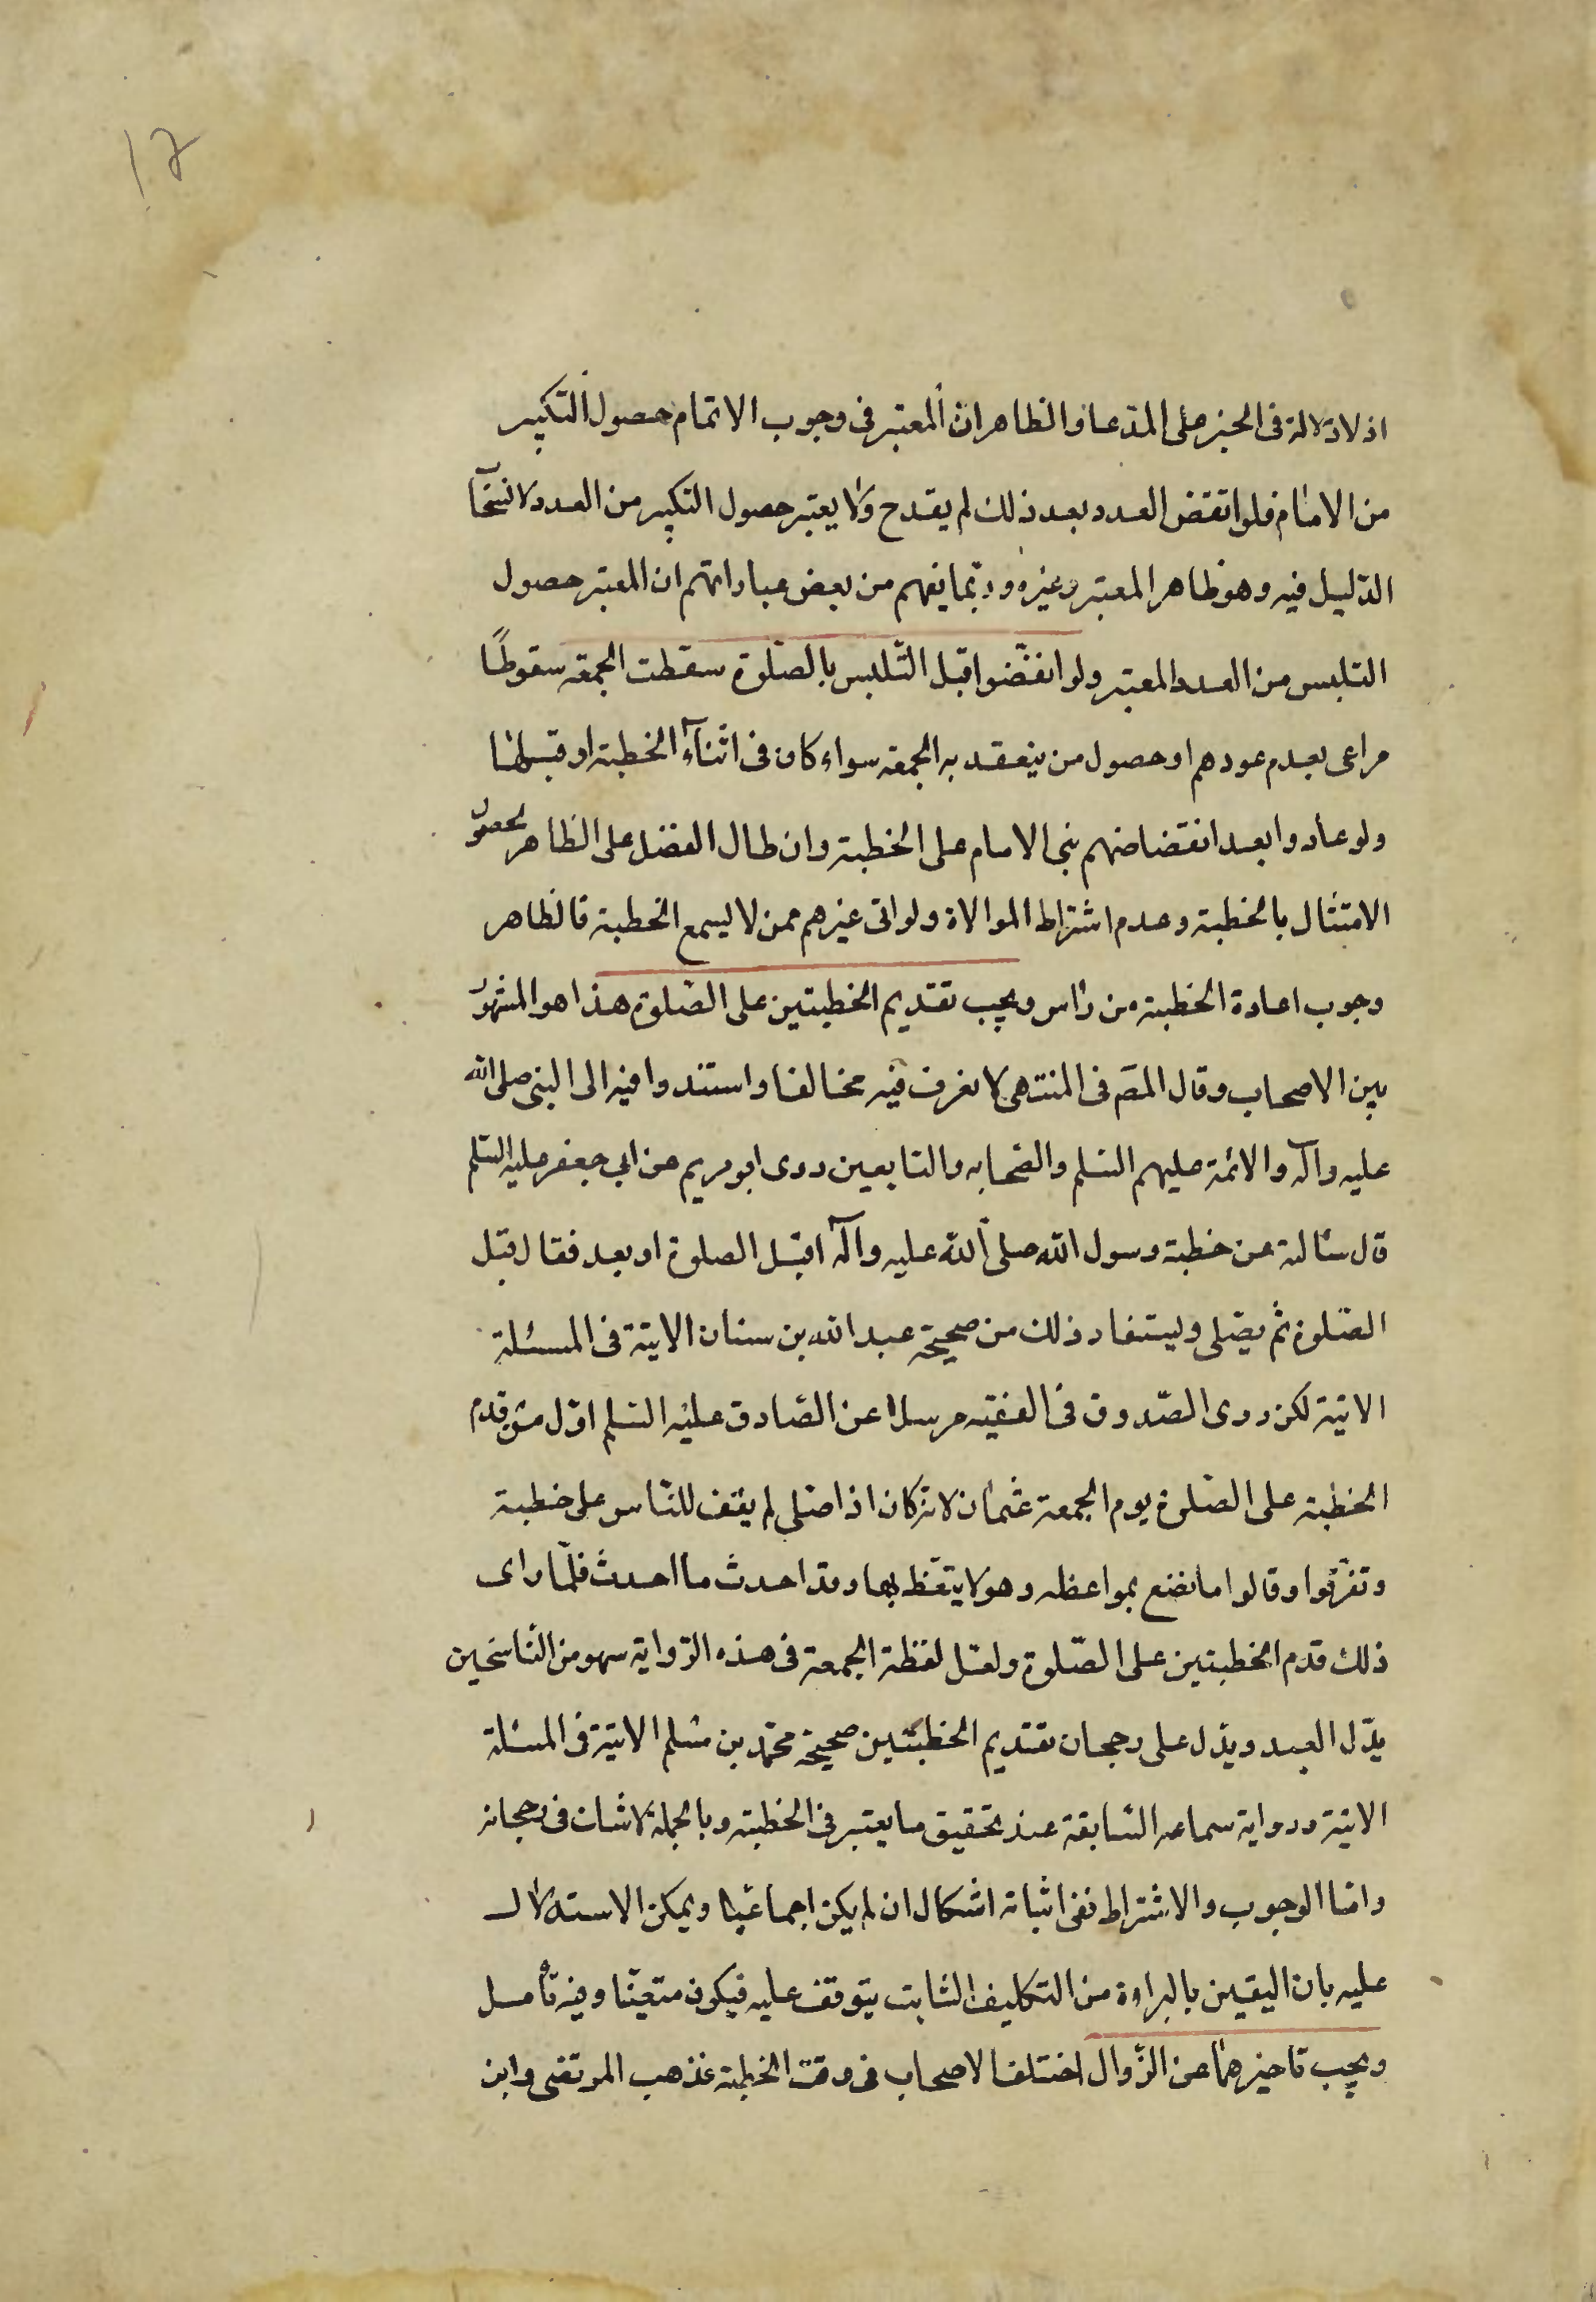 ١٢
اذ لا دلالة فى الخبر على المدعا والظاهر انّ المعتبر فى وجوب الاتمام حصول التكبير
من الامام فلو انقض العدد بعد ذلك لم يقدح ولا يعتبر حصول التكبير من العدد لانتفآ
الدّليل فيه وهو ظاهر المعتبر وغيره وربّما يفهم من بعض عباراتهم ان المعتبر حصول
التلبس من العدد المعتبر ولو انفضّوا قبل التّلبس بالصّلوة سقطت الجمعة سقوطًا
مراعى بعدم عودهم او حصول من ينعقد به الجمعة سواء كان فى اثنآء الخطبة او قبلها
ولو عادوا بعد انفضاضهم بنى الامام على الخطبة وان طال الفصل على الظاهر لحصول
الامتثال بالخطبة وعدم اشتراط الموالاة ولو اتى غيرهم ممن لا يسمع الخطبة فالظاهر
وجوب اعادة الخطبة من راس ويجب تقديم الخطبتين على الصّلوة هذا هو المشهور
بين الاصحاب وقال المصّ فى المنتهى لا نعرف فيه مخالفا واستندوا فيه الى النبى صلى الله
عليه وآله والائمة عليهم السّلم والصّحابه والتابعين روى ابو مريم عن ابي جعفر عليه السّلم
قال سئالته عن خطبة رسول الله صلى الله عليه وآله اقبل الصلوة او بعد فقال قبل
الصّلوة ثم يصّلى ويستفاد ذلك من صحيحة عبد الله بن سنان الاتية فى المسئلة
الاتية لكن روى الصّدوق فى الفقيه مرسلا عن الصّادق عليه السّلم اوّل من قدم
الخطبة على الصّلوة يوم الجمعة عثمان لانه كان اذا صّلى لم يقف للنّاس على خطبة
وتفرّقوا وقالوا ما نصنع بمواعظه وهو لا يتعّظ بها وقد احدث ما احدث فلمّا راى
ذلك قدم الخطبتين على الصّلوة ولعّل لفظة الجمعة فى هذه الرّواية سهو من النّاسخين
بدّل العيد ويدّل على رجحان تقديم الخطبتين صحيحة محمّد بن مسلم الاتية فى المسئلة
الاتية ورواية سماعه السّابقة عند تحقيق ما يعتبر فى الخطبة وبالجملة لا شك فى رجحانه
وامّا الوجوب والاشتراط ففى اثباته اشكال ان لم يكن اجماعيّا ويمكن الاستدلال
عليه بان اليقين بالبراءة من التكليف الثابت يتوقف عليه فيكون متعيّنا وفيه تأمل
ويجب تاخيرهما عن الزّوال اختلف الاصحاب فى وقت الخطبة فذهب المرتضى وابن